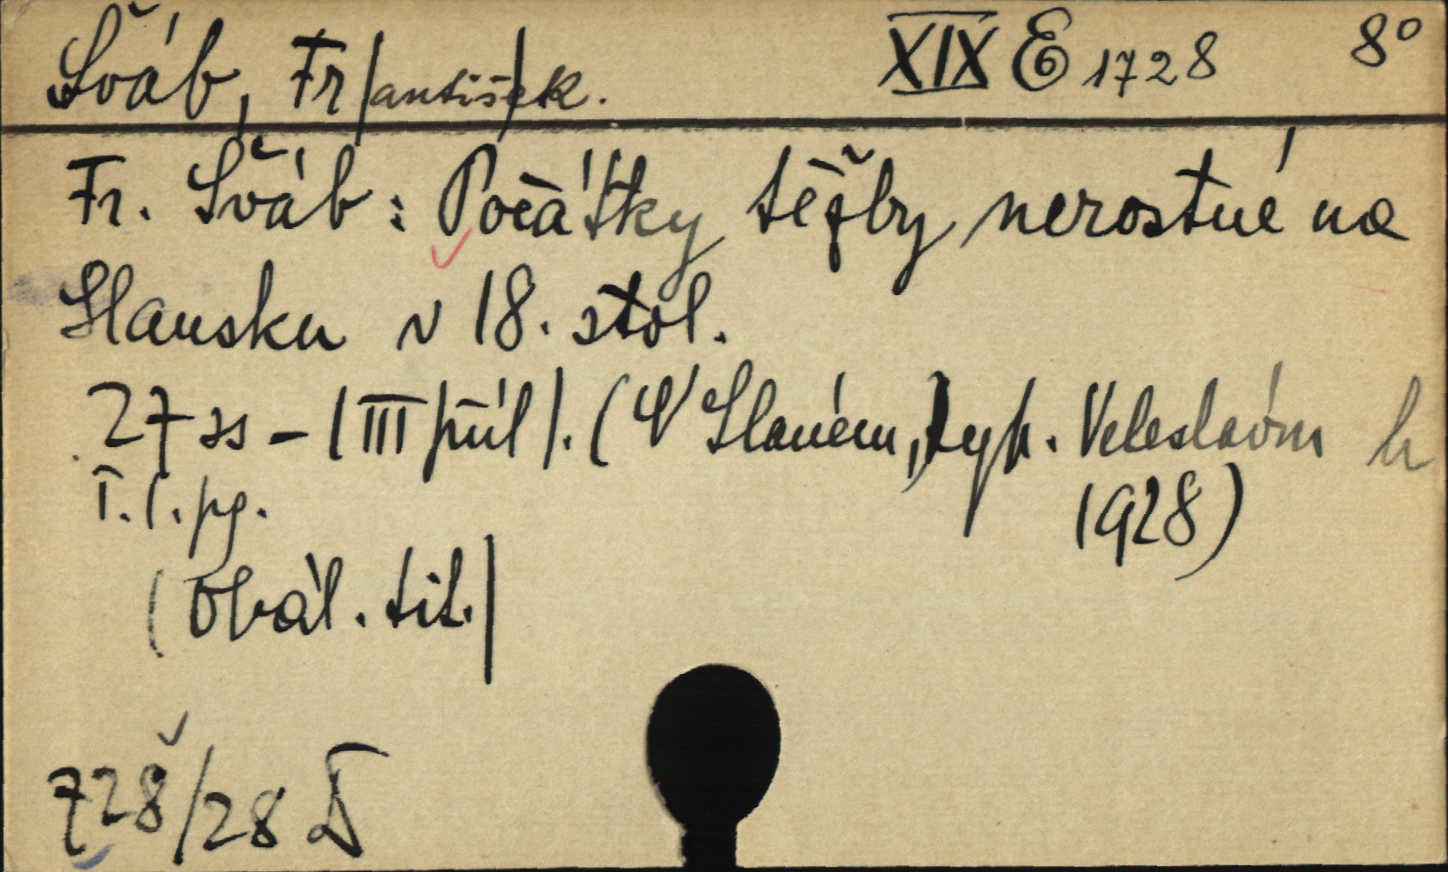 Šváb, Fr/antiš/ek. XIX E 1728 8°
Fr. Šváb: Počátky těžby nerostné na
Slansku v 18. stol.
27 ss - |III příl|. (V Slaném, typ. Veleslavín
1928)
T. l. pg.
(Obál. tit.)
728/28 D